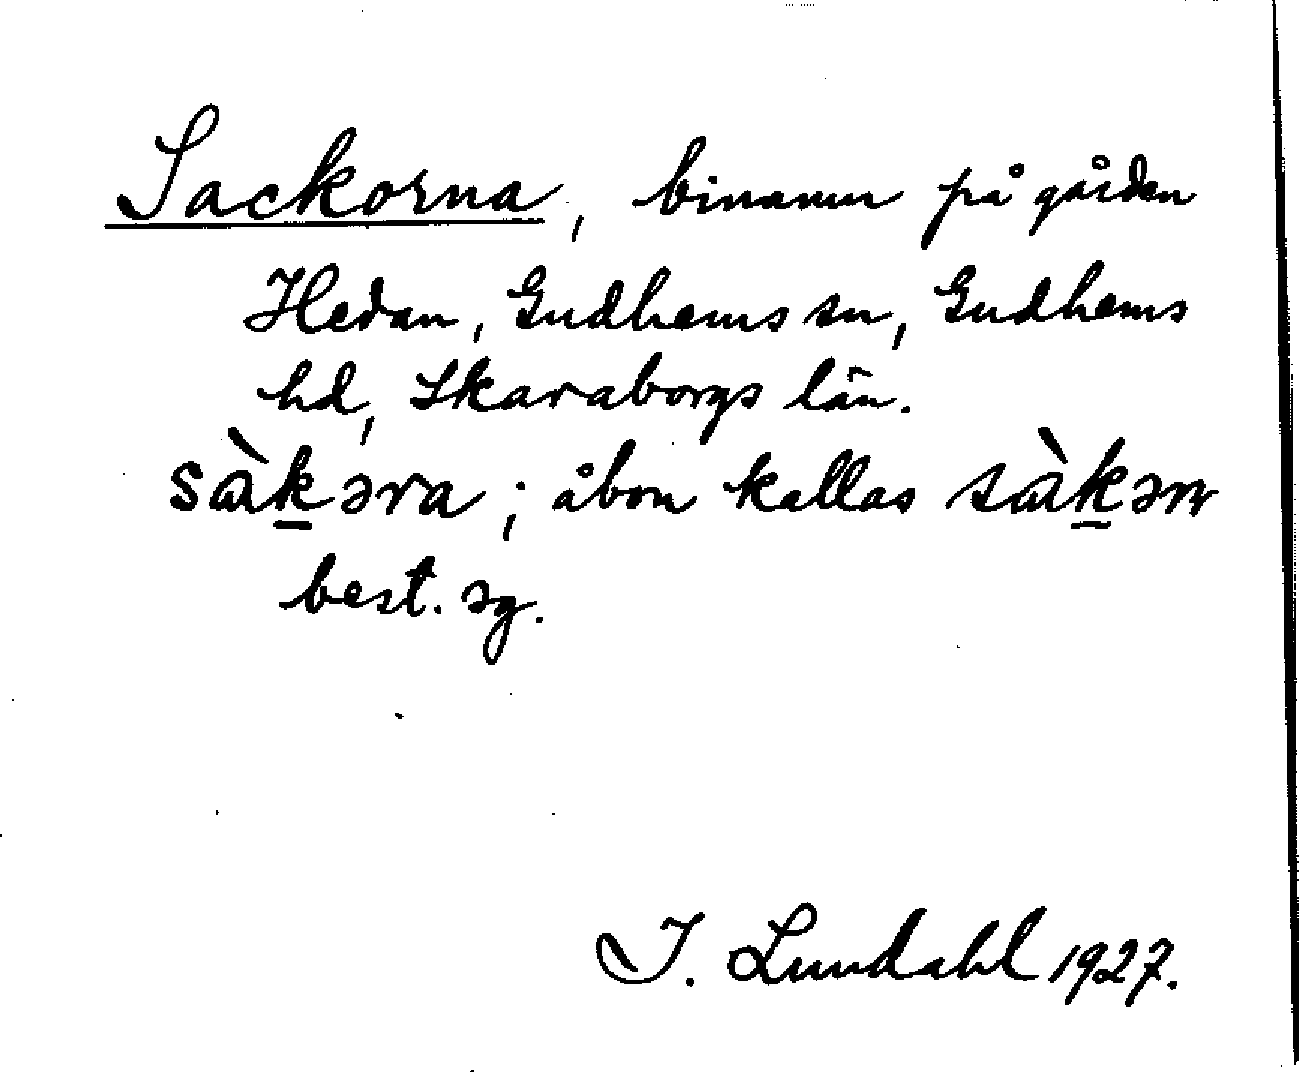 Sackorna, binamn på gården
Hedan, Gudhems sn, Gudhems
hd, Skaraborgs län.
sàk̲əra; åbon kallas sàk̲ən
best. sg.
I. Lundahl 1927.